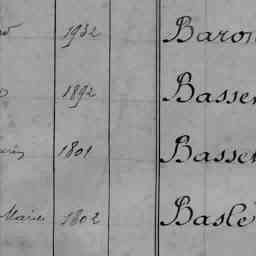 1932 Baron
1892 Basse
1801 Basse
Marie 1802 Baslé